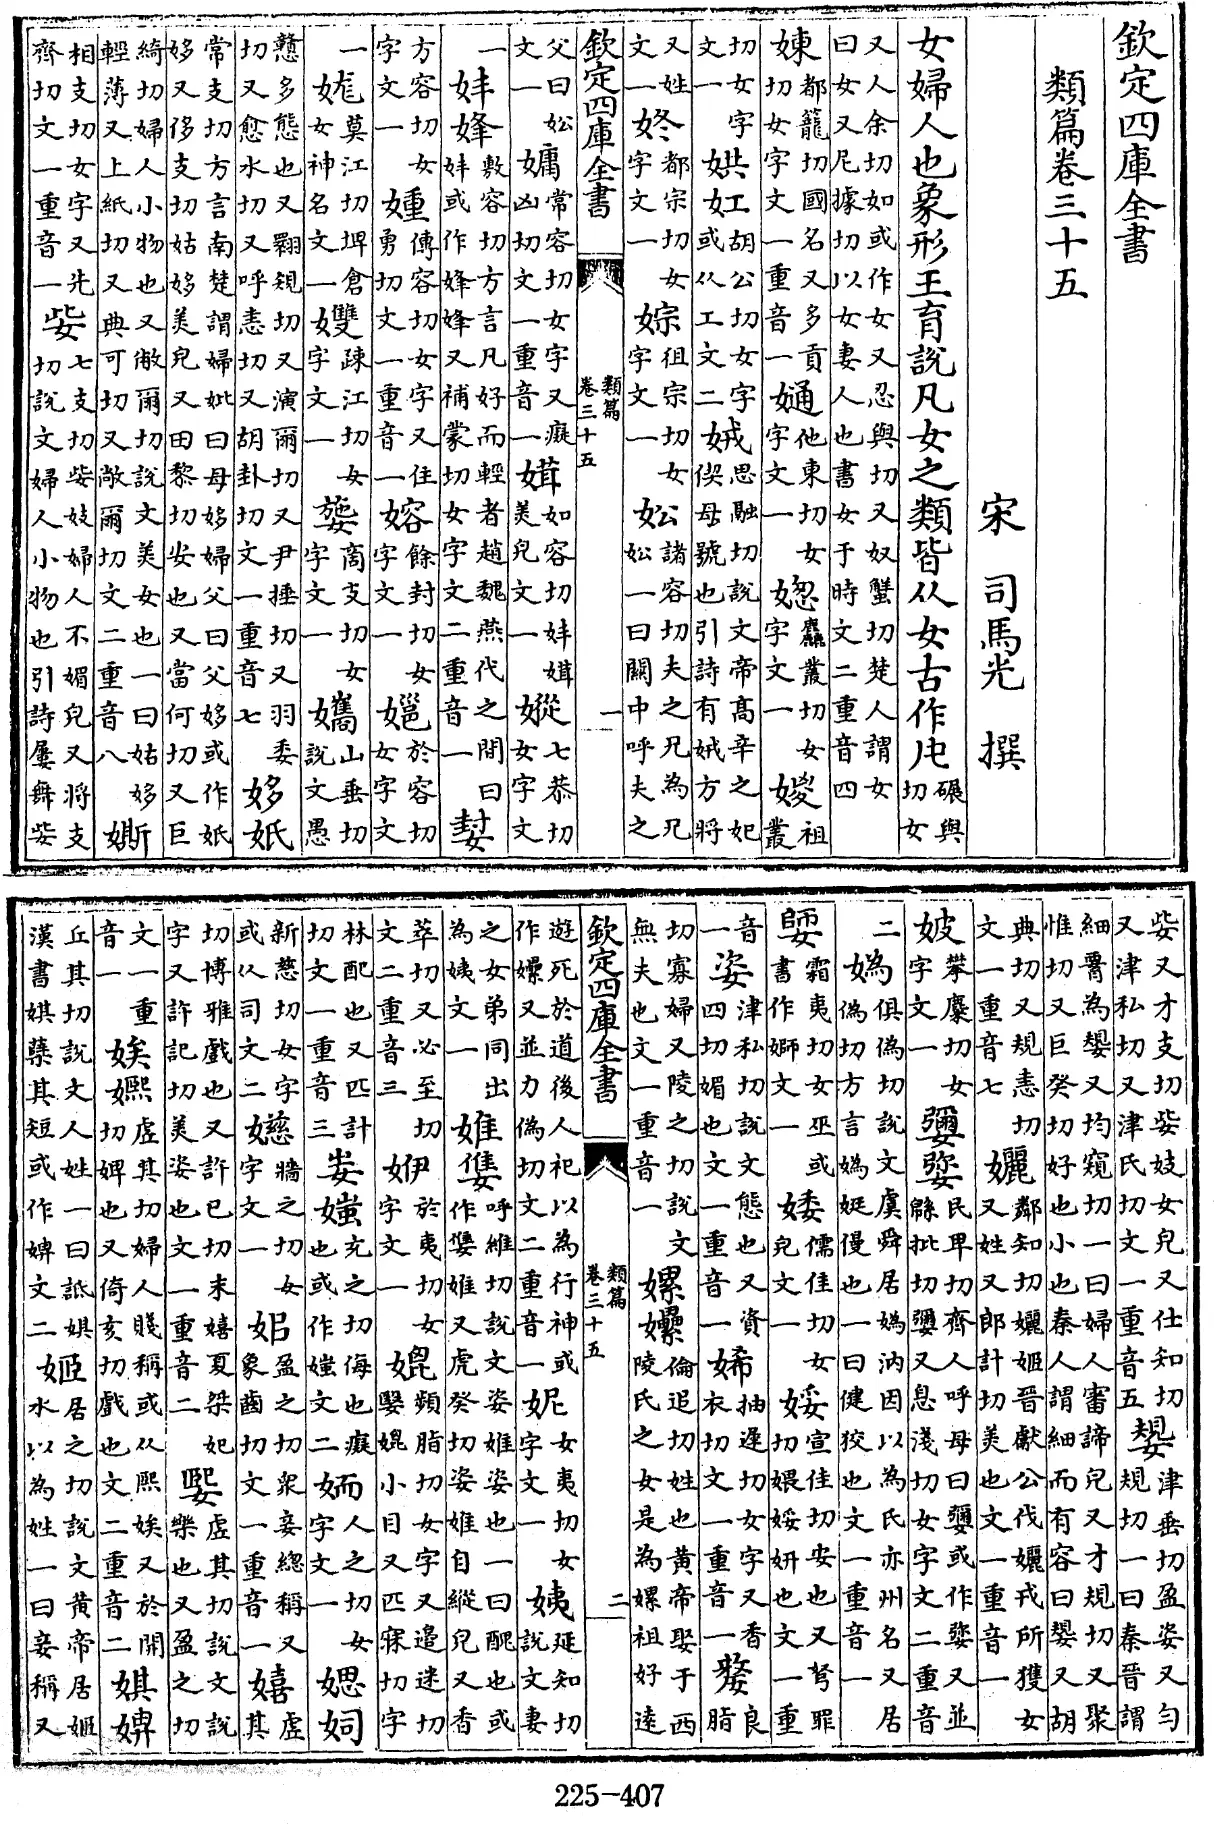 欽定四庫全書
類篇卷三十五
宋 司馬光 撰
女婦人也象形王育說凡女之類皆从女古作 碾與切女
又人余切如或作女又忍與切又奴蟹切楚人謂女曰女又尼據切以女妻人也書女于時文二重音四
娻都籠切國名又多貢切女字文一重音一 他東切女字文一 麤叢切女字文一 祖叢
切女字文一娂 胡公切女字或从工文二娀思融切說文帝高辛之妃偰母號也引詩有娀方將
又姓文一㚵都宗切女字文一婃祖宗切女字文一妐諸容切夫之兄為兄妐一曰關中呼夫之
欽定四庫全書 類篇卷三十五 一
父曰妐文一 常容切女字又癡凶切文一重音一媶如容切妦媶美皃文一 七恭切女字文
一妦㛔敷容切方言凡好而輕者趙魏燕代之間曰妦或作㛔㛔又補蒙切女字文二重音一
方容切女字文一媑傳容切女字又住勇切文一重音一嫆餘封切女字文一 於容切女字文
一娏莫江切埤倉女神名文一 疎江切女字文一 商支切女字文一 山垂切說文愚
戇多態也又翾規切又演爾切又尹捶切又羽委切又愈水切又呼恚切又胡卦切文一重音七姼妷
常支切方言南楚謂婦妣曰母姼婦父曰父姼或作妷姼又侈支切姑姼美皃又田黎切安也又當何切又巨
綺切婦人小物也又敞爾切說文美女也一曰姑姼輕薄又上紙切又典可切又敞爾切文二重音八
相支切女字又先齊切文一重音一姕七支切姕妓婦人不媚皃又將支切說文婦人小物也引詩屢舞姕
姕又才支切姕妓女皃又仕知切又津私切又津氏切文一重音五嫢津垂切盈姿又勻規切一曰秦晉謂
細䚻為嫢又均窺切一曰婦人審諦皃又才規切又聚惟切又巨癸切好也小也秦人謂細而有容曰嫢又胡
典切又規恚切文一重音七孋鄰知切孋姬晉獻公伐孋戎所獲女又姓又郎計切美也文一重音一
㛅攀麋切女字文一 民卑切齊人呼母曰 或作 又並 批切 又息淺切女字文二重音
二媯俱偽切說文虞舜居媯汭因以為氏亦州名又居偽切方言媯娗僈也一曰健狡也文一重音一
霜夷切女巫或書作 文一 儒佳切女皃文一 宣佳切安也又弩罪切婑妍也文一重
音一姿津私切說文態也又資四切媚也文一重音一 抽遲切女字又香衣切文一重音一嫠良脂
切寡婦又陵之切說文無夫也文一重音一嫘㜶倫追切姓也黃帝娶于西陵氏之女是為嫘祖好遠
欽定四庫全書 類篇卷三十五 二
遊死於道後人祀以為行神或作嫘又並力偽切文二重音一妮女夷切女字文一姨延知切說文妻
之女弟同出為姨文一 呼維切說文姿婎姿也一曰醜也或作 婎又虎癸切姿婎自縱皃又香
萃切又必至切文二重音三 於夷切女字文一媲頻脂切女字又邉迷切 媲小目又匹寐切字
林配也又匹計切文一重音三媸充之切侮也癡也或作媸文二 人之切女字文一媤
新慈切女字或从司文二 牆之切女字文一 盈之切眾妾緫稱又象齒切文一重音一嬉虛其
切博雅戲也又許已切末嬉夏桀妃字又許記切美姿也文一重音二 虛其切說文說樂也又盈之切
文一重音一娭嬹虛其切婦人賤稱或从熙娭又於開切婢也又倚亥切戲也文二重音二娸
丘其切說文人姓一曰詆娸漢書娸櫱其短或作 文二姬居之切說文黃帝居姬水以為姓一曰妾稱又
225-407